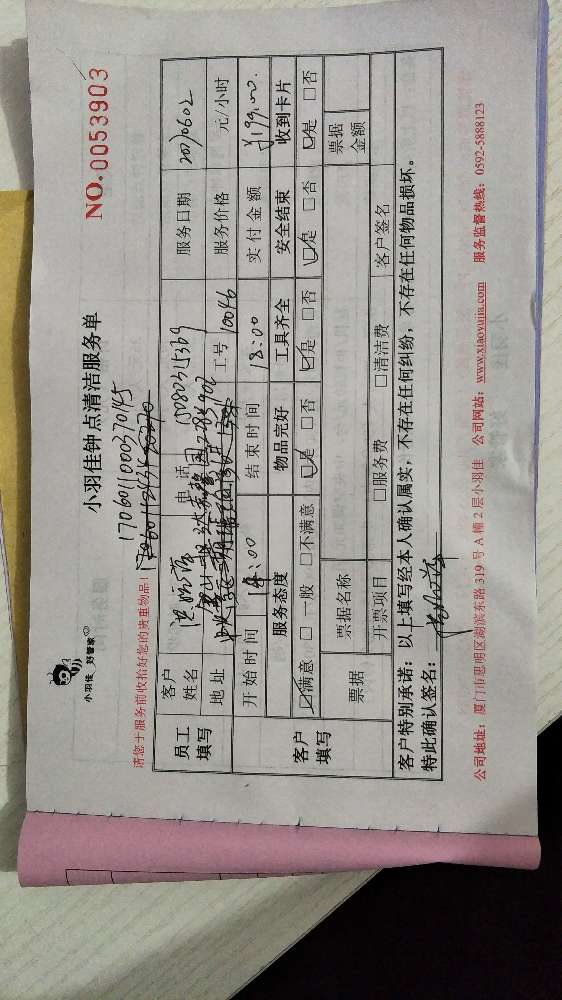 小羽佳 好管家
小羽佳钟点清洁服务单
NO.0053903
请您于服务前收拾好您的贵重物品!
170601100037045
员工填写
客户姓名
电话
服务日期 20170602
地址
工号 10046
服务价格 元/小时
开始时间 14:00 结束时间 18:00 实付金额 ¥199.00.
客户填写
服务态度 物品完好 工具齐全 安全结束 收到卡片
☑满意 □一般 □不满意 ☑是 □否 ☑是 □否 ☑是 □否 ☑是 □否
票据 票据名称 票据金额
开票项目 □服务费 □清洁费 客户签名
客户特别承诺：以上填写经本人确认属实，不存在任何纠纷，不存在任何物品损坏.
特此确认签名：
公司地址：厦门市思明区湖滨东路 319 号 A 幢 2 层小羽佳 公司网站：www.xiaoyujia.com 服务监督热线：0592-5888123